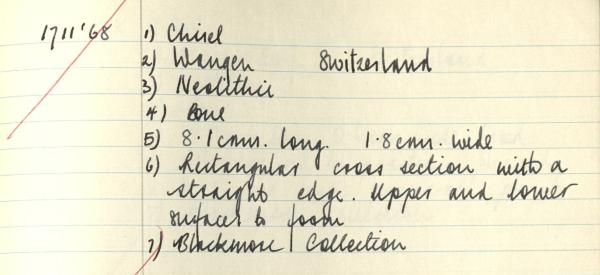 17 11 '68 1) Chisel
2) Wangen Switzerland
3) Neolithic
4) Bone
5) 8.1 cms. long. 1.8 cms. wide
6) Rectangular cross section with a
straight edge. Upper and lower
surfaces to
7) Blackmore Collection